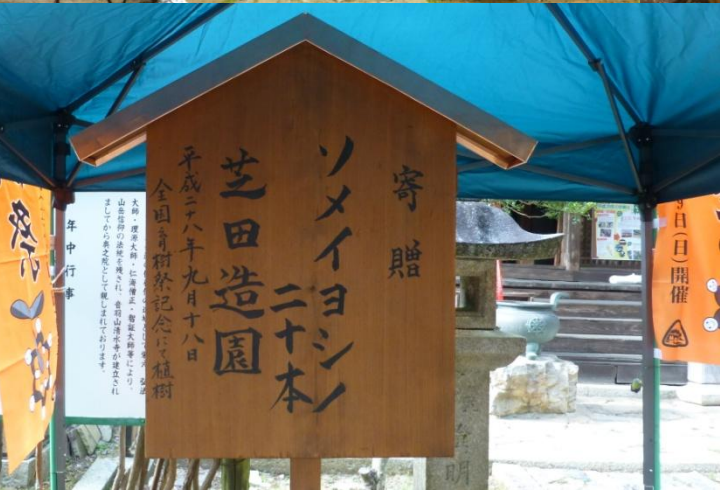 寄贈
ソメイヨシノ
二十本
芝田造園
平成二十八年九月十八日
全国育樹祭記念にて植樹
年中行事
大師・理源大師・仁海僧正・智証大師等により、
山岳信仰の法統を残され、音羽山清水寺が建立され
ましてから奥之院として親しまれております。
祭
日(日)開催
明